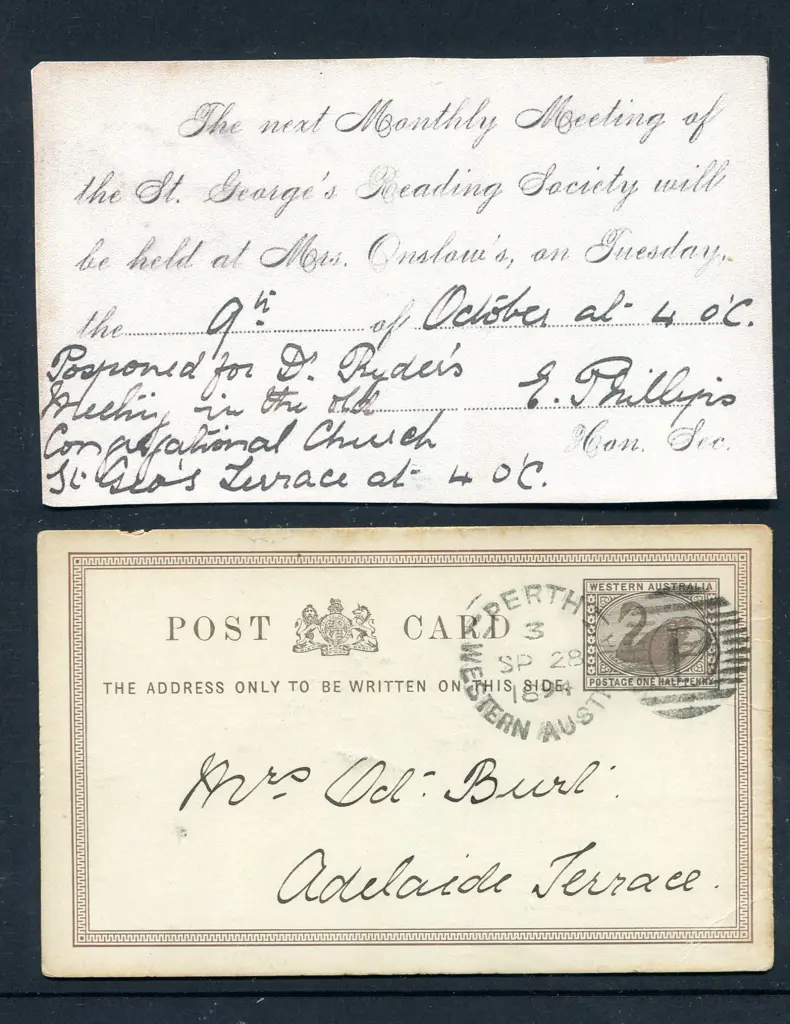 The next Monthly Meeting of
the St. George's Reading Society will
be held at Mrs. Onslow's, on Tuesday,
the 9th of October at 4 o'C.
Postponed for Dr. Ryder's
E. Phillips
Meeting in the old
Congregational Church
Hon. Sec.
St Geo's Terrace at 4 o'C.
WESTERN AUSTRALIA
POST CARD
PERTH
3
SP 28
1894
WESTERN AUST
2
P
POSTAGE ONE HALF PENNY
THE ADDRESS ONLY TO BE WRITTEN ON THIS SIDE.
Mrs Oct. Burt.
Adelaide Terrace.